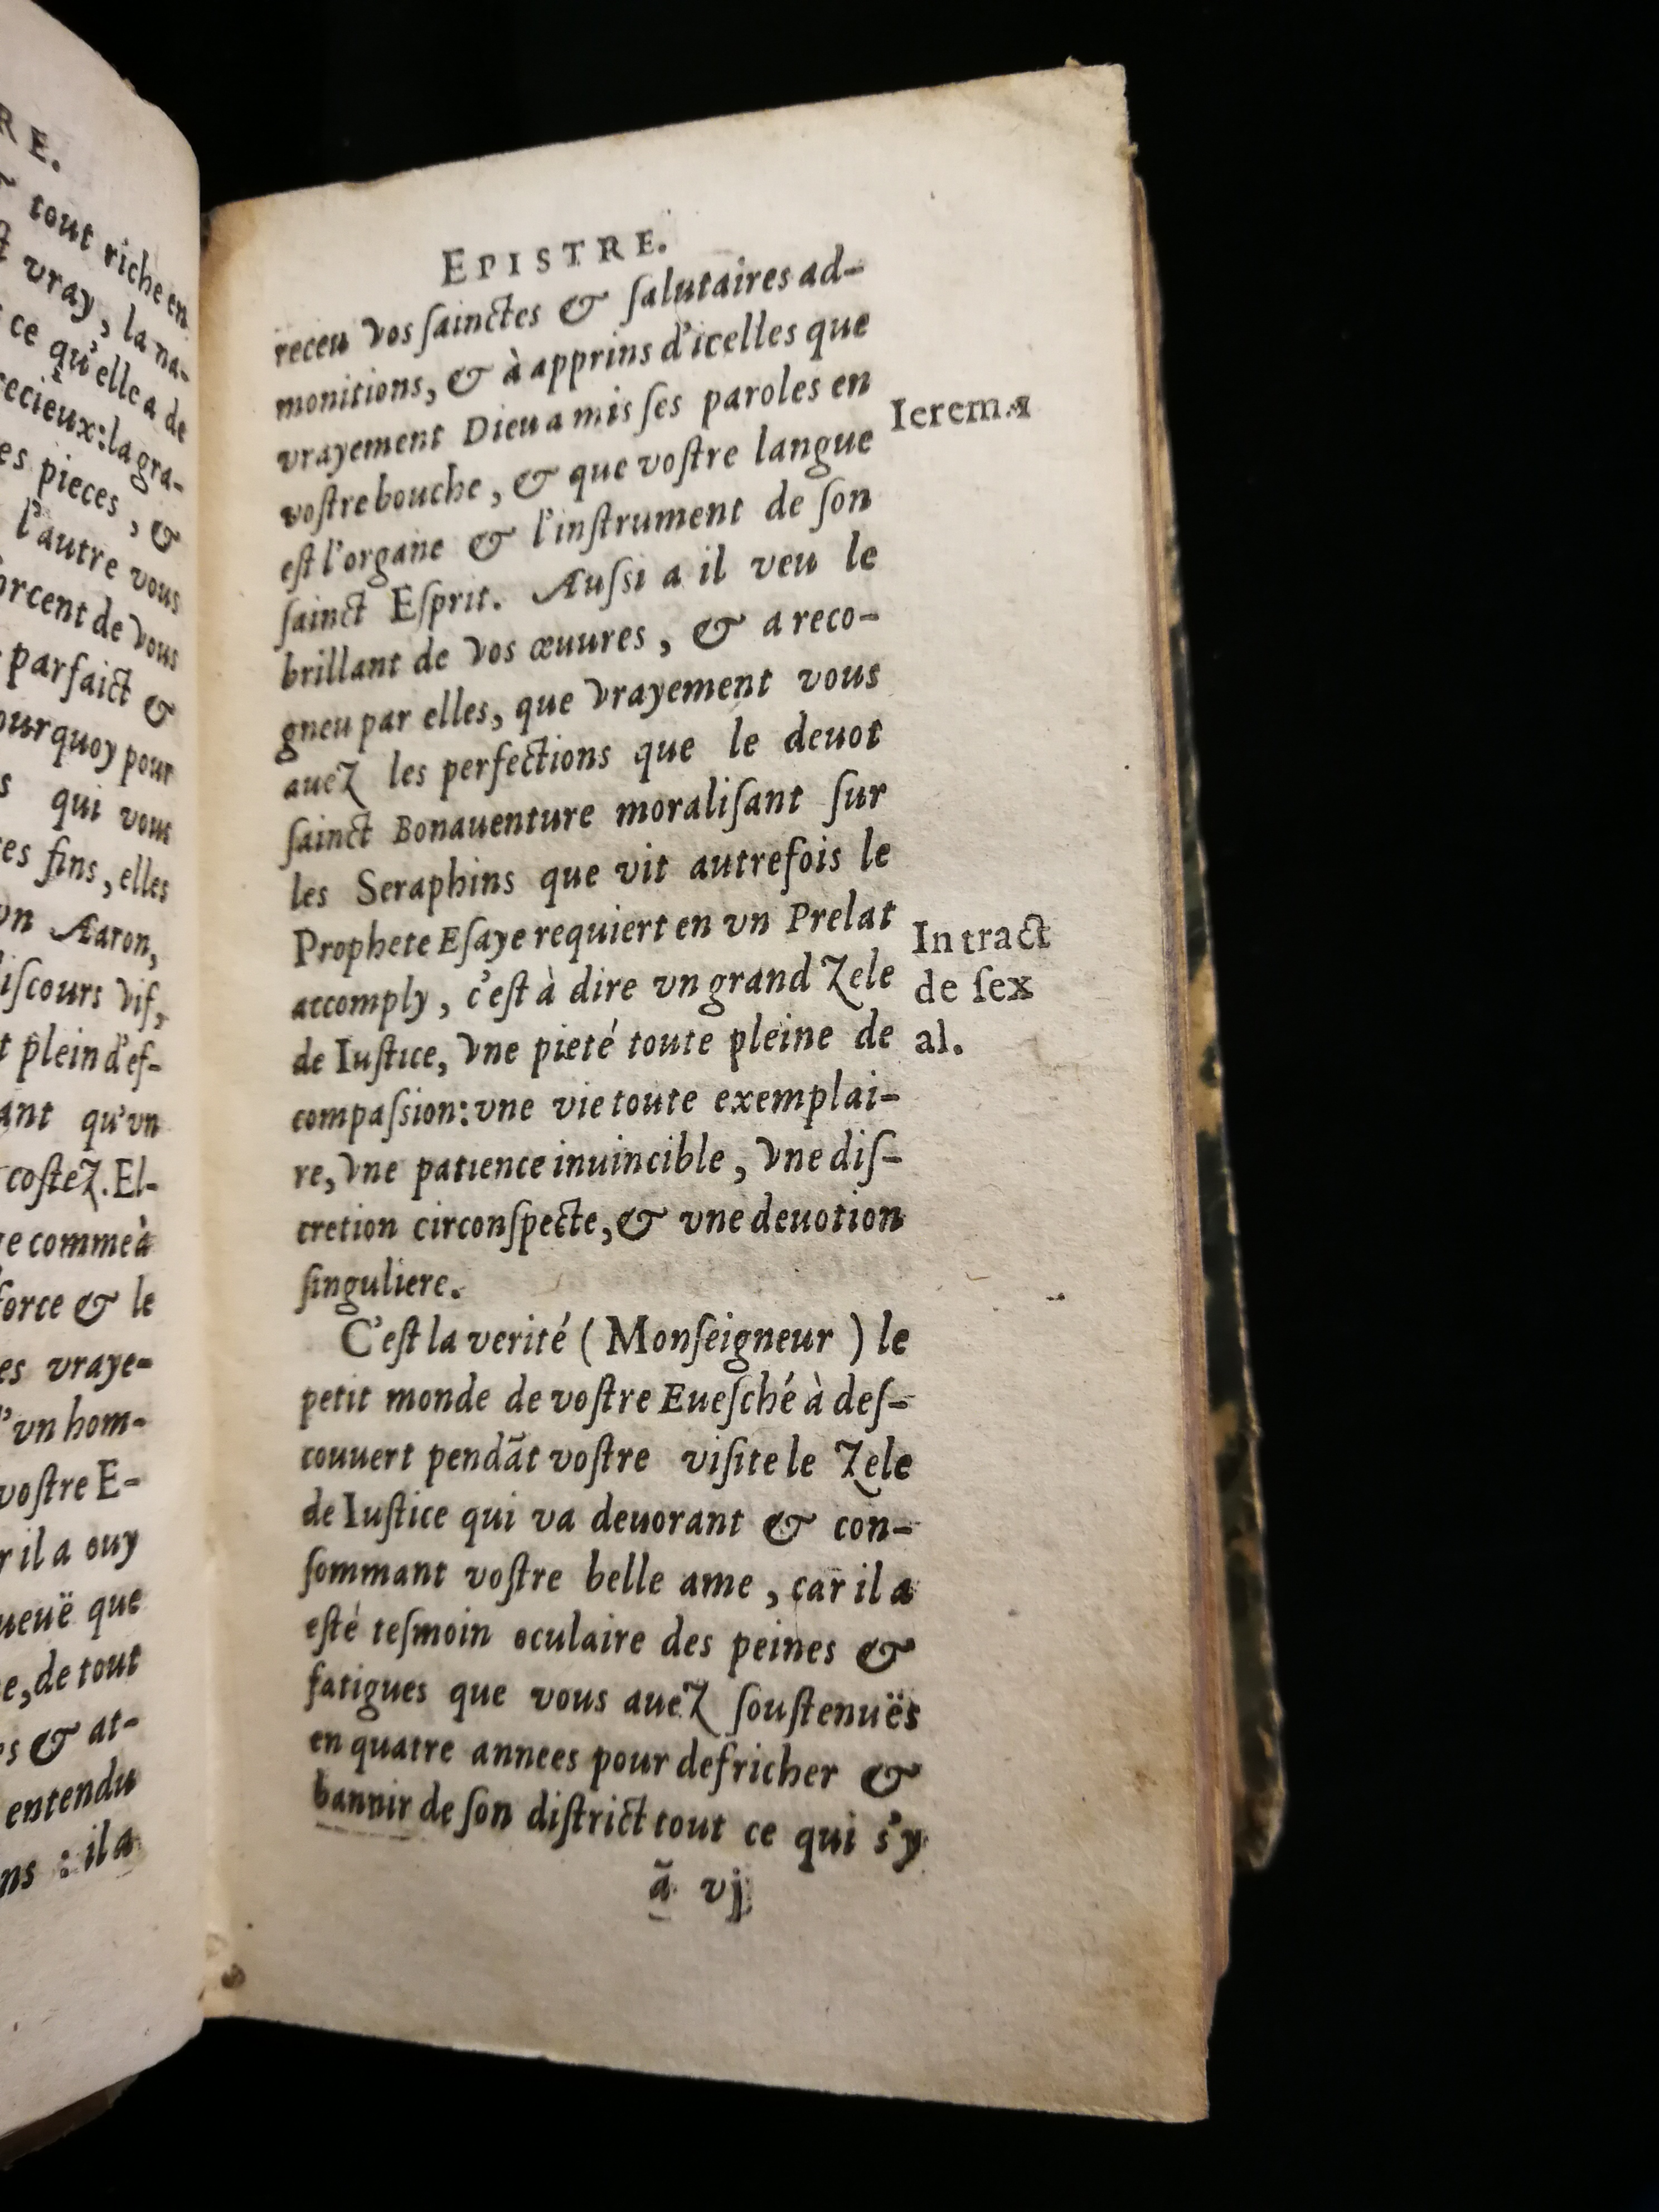 RE.
tout riche en
vray, la na-
ce qu'elle a de
recieux: la gra-
es pieces, &
l'autre vous
orcent de vous
parfaict &
ourquoy pour
s qui vous
es fins, elles
vn Aaron,
iſcours vif,
t plein d'eſ-
ant qu'vn
coſtez. El-
ge comme à
force & le
es vraye-
'vn hom-
voſtre E-
r il a ouy
ueuë que
e, de tout
s & at-
entendu
ns : il a
EPISTRE.
receu vos ſainctes & ſalutaires ad-
monitions, & à apprins d'icelles que
vrayement Dieu a mis ſes paroles en
Ierem.1
voſtre bouche, & que voſtre langue
eſt l'organe & l'inſtrument de ſon
ſainct Eſprit. Auſsi a il veu le
brillant de vos œuures, & a reco-
gneu par elles, que vrayement vous
auez les perfections que le deuot
ſainct Bonauenture moraliſant ſur
les Seraphins que vit autrefois le
Prophete Eſaye requiert en vn Prelat
In tract
accomply, c'eſt à dire vn grand zele
de ſex
de Iuſtice, vne pieté toute pleine de
al.
compaſsion: vne vie toute exemplai-
re, vne patience inuincible, vne diſ-
cretion circonſpecte, & vne deuotion
ſinguliere.
C'eſt la verité (Monſeigneur) le
petit monde de voſtre Eueſché à deſ-
couuert pendãt voſtre viſite le zele
de Iuſtice qui va deuorant & con-
ſommant voſtre belle ame, car il a
eſté teſmoin oculaire des peines &
fatigues que vous auez ſouſtenuës
en quatre annees pour defricher &
bannir de ſon diſtrict tout ce qui s'y
ã vj